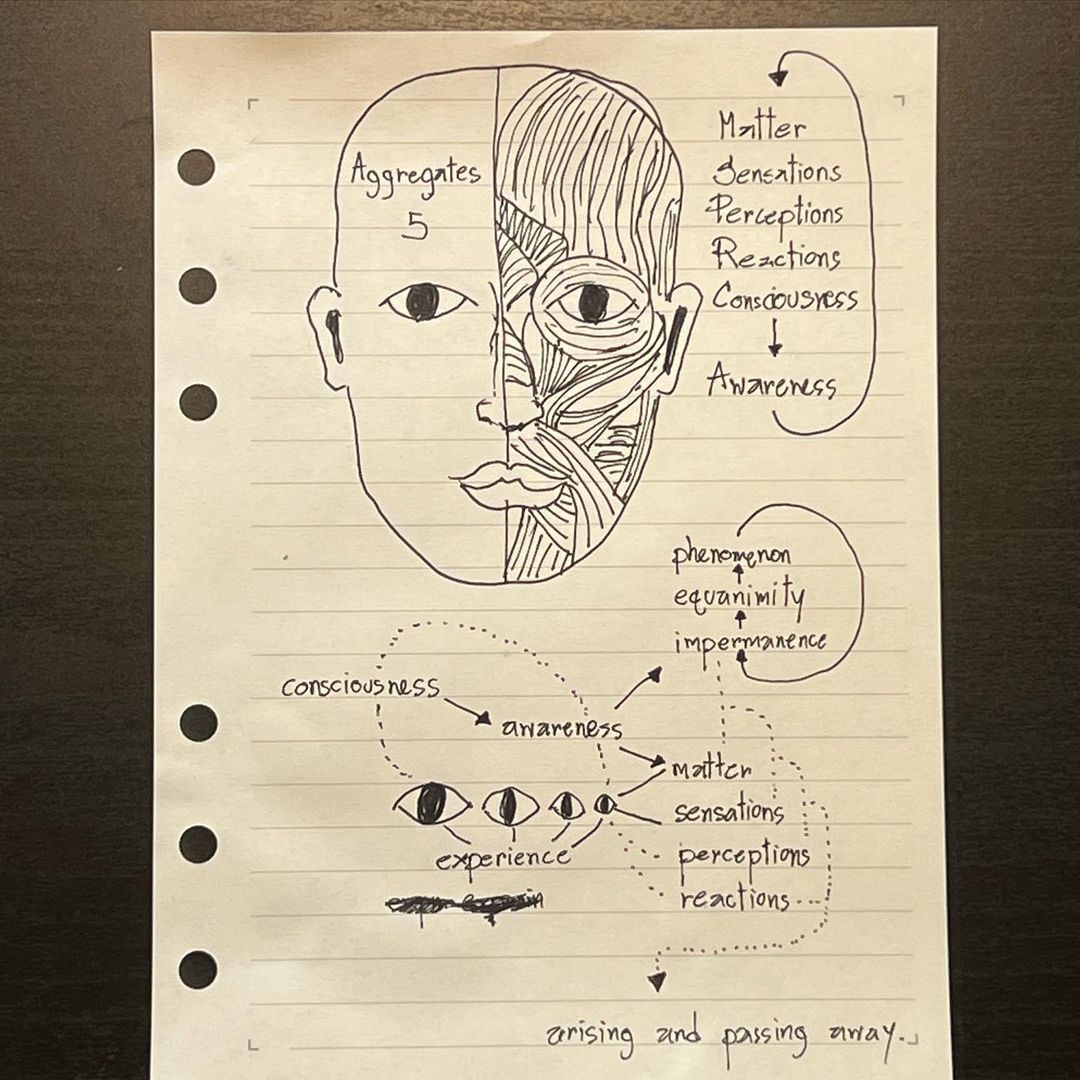 Aggregates
5
Matter
Sensations
Perceptions
Reactions
Consciousness
Awareness
phenomenon
equanimity
impermanence
consciousness
awareness
matter
sensations
experience
perceptions
reactions
arising and passing away.